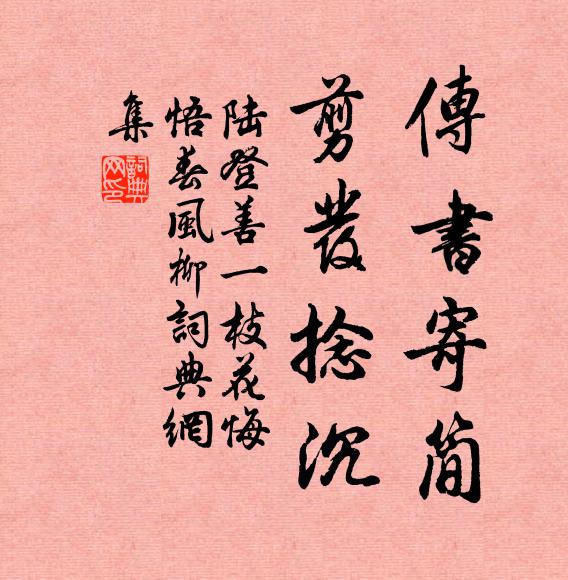 傳書寄簡
剪發捻沉
陆登善一枝花悔
悟春風柳詞典網
集
詞典網印